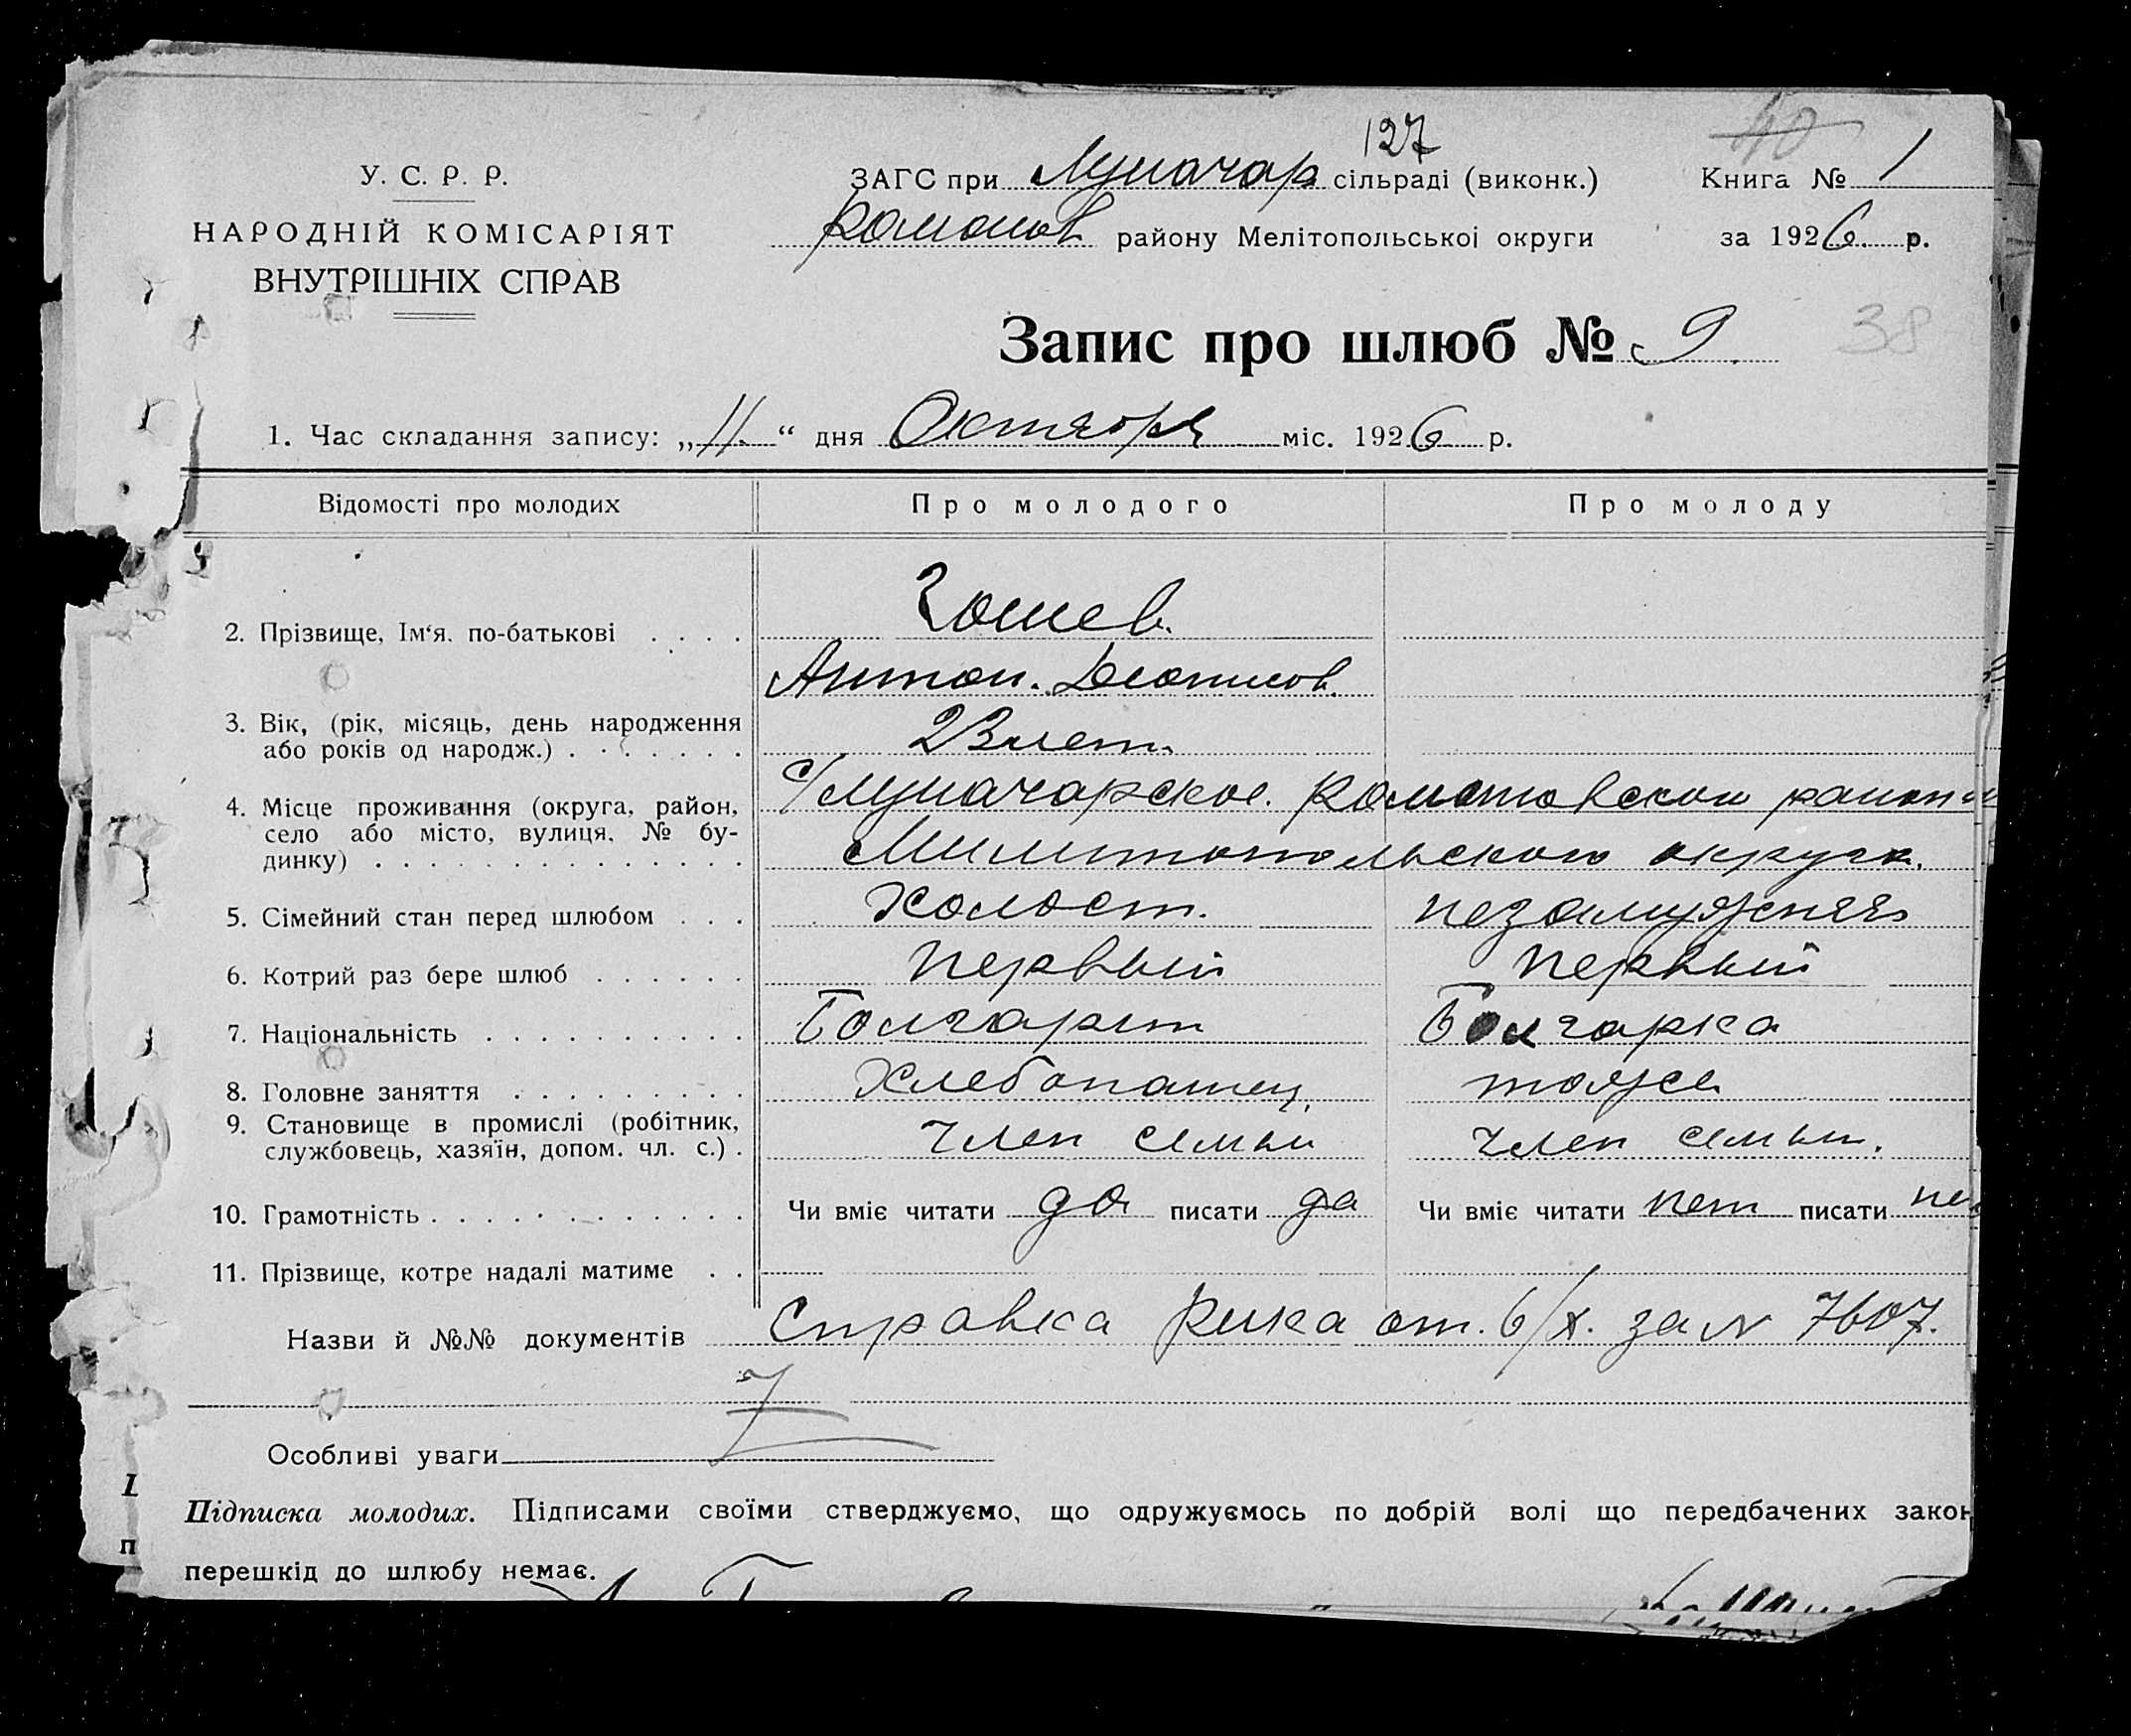 127
40
У. С. Р. Р.
ЗАГС при Луначар сільраді (виконк.)
Книга № 1
НАРОДНІЙ КОМІСАРІЯТ
Романов району Мелітопольської округи
за 1926 р.
ВНУТРІШНІХ СПРАВ
Запис про шлюб № 9.
38
1. Час складання запису: „11.“ дня Октября міс. 1926 р.
Відомості про молодих
Про молодого
Про молоду
2. Прізвище, Ім‘я. по-батькові
Гошев.
Антон.
3. Вік, (рік, місяць, день народження
або років од народж.)
23 лет.
4. Місце проживання (округа, район,
село або місто, вулиця, № бу-
динку)
с/Луначарское. Романовскои раион
Милитопольского округа.
5. Сімейний стан перед шлюбом
Холост.
незамужняя
6. Котрий раз бере шлюб
первый
первый
7. Національність
Болгарин
Болгарка
8. Головне заняття
Хлебопашец,
тоже
9. Становище в промислі (робітник,
службовець, хазяїн, допом. чл. с.)
член семьи
член семьи.
10. Грамотність
Чи вміє читати да писати да
Чи вміє читати нет писати нет
11. Прізвище, котре надалі матиме
Назви й №№ документів Справка Рика от. 6/X. за N 7607.
Особливі уваги
Підписка молодих. Підписами своїми стверджуємо, що одружуємось по добрій волі що передбачених закон
перешкід до шлюбу немає.